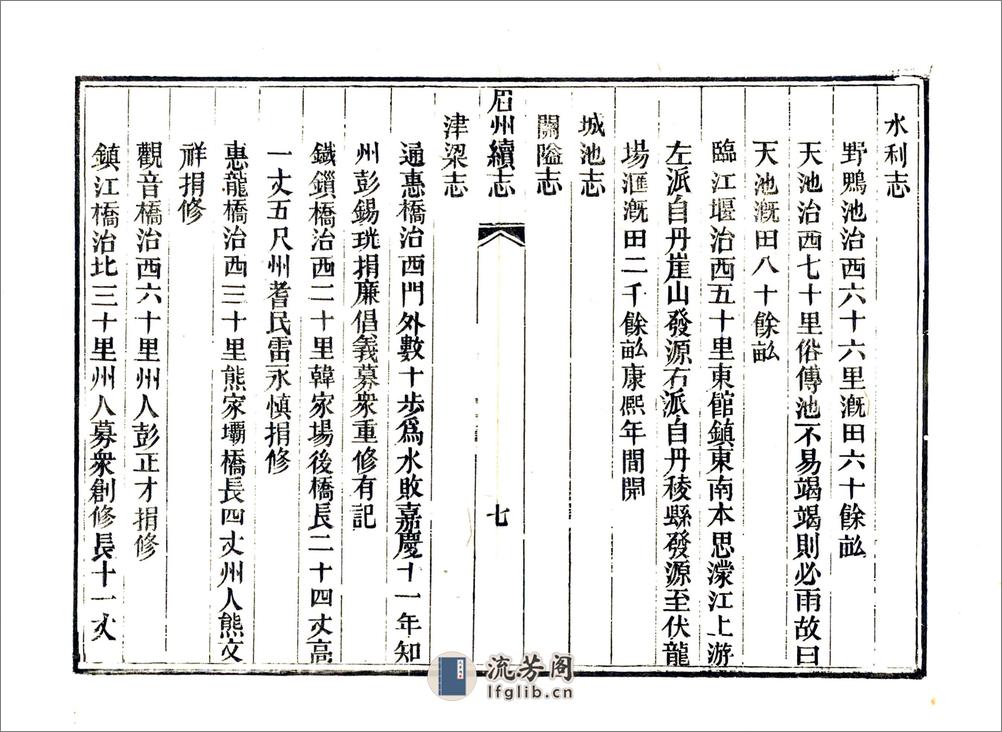 水利志
野鴨池治西六十六里漑田六十餘畝
天池治西七十里俗傳池不易竭竭則必雨故曰
天池漑田八十餘畝
臨江堰治西五十里東館鎮東南本思濛江上游
左派自丹崖山發源右派自丹稜縣發源至伏龍
場滙漑田二千餘畝康熙年間開
城池志
關隘志
眉州續志
七
津梁志
通惠橋治西門外數十步爲水敗嘉慶十一年知
州彭錫珖捐廉倡義募衆重修有記
鐵鎖橋治西二十里韓家場後橋長二十四丈高
一丈五尺州耆民雷永慎捐修
惠龍橋治西三十里熊家壩橋長四丈州人熊文
祥捐修
觀音橋治西六十里州人彭正才捐修
鎮江橋治北三十里州人募衆創修長十一丈
流芳阁
lfglib.cn